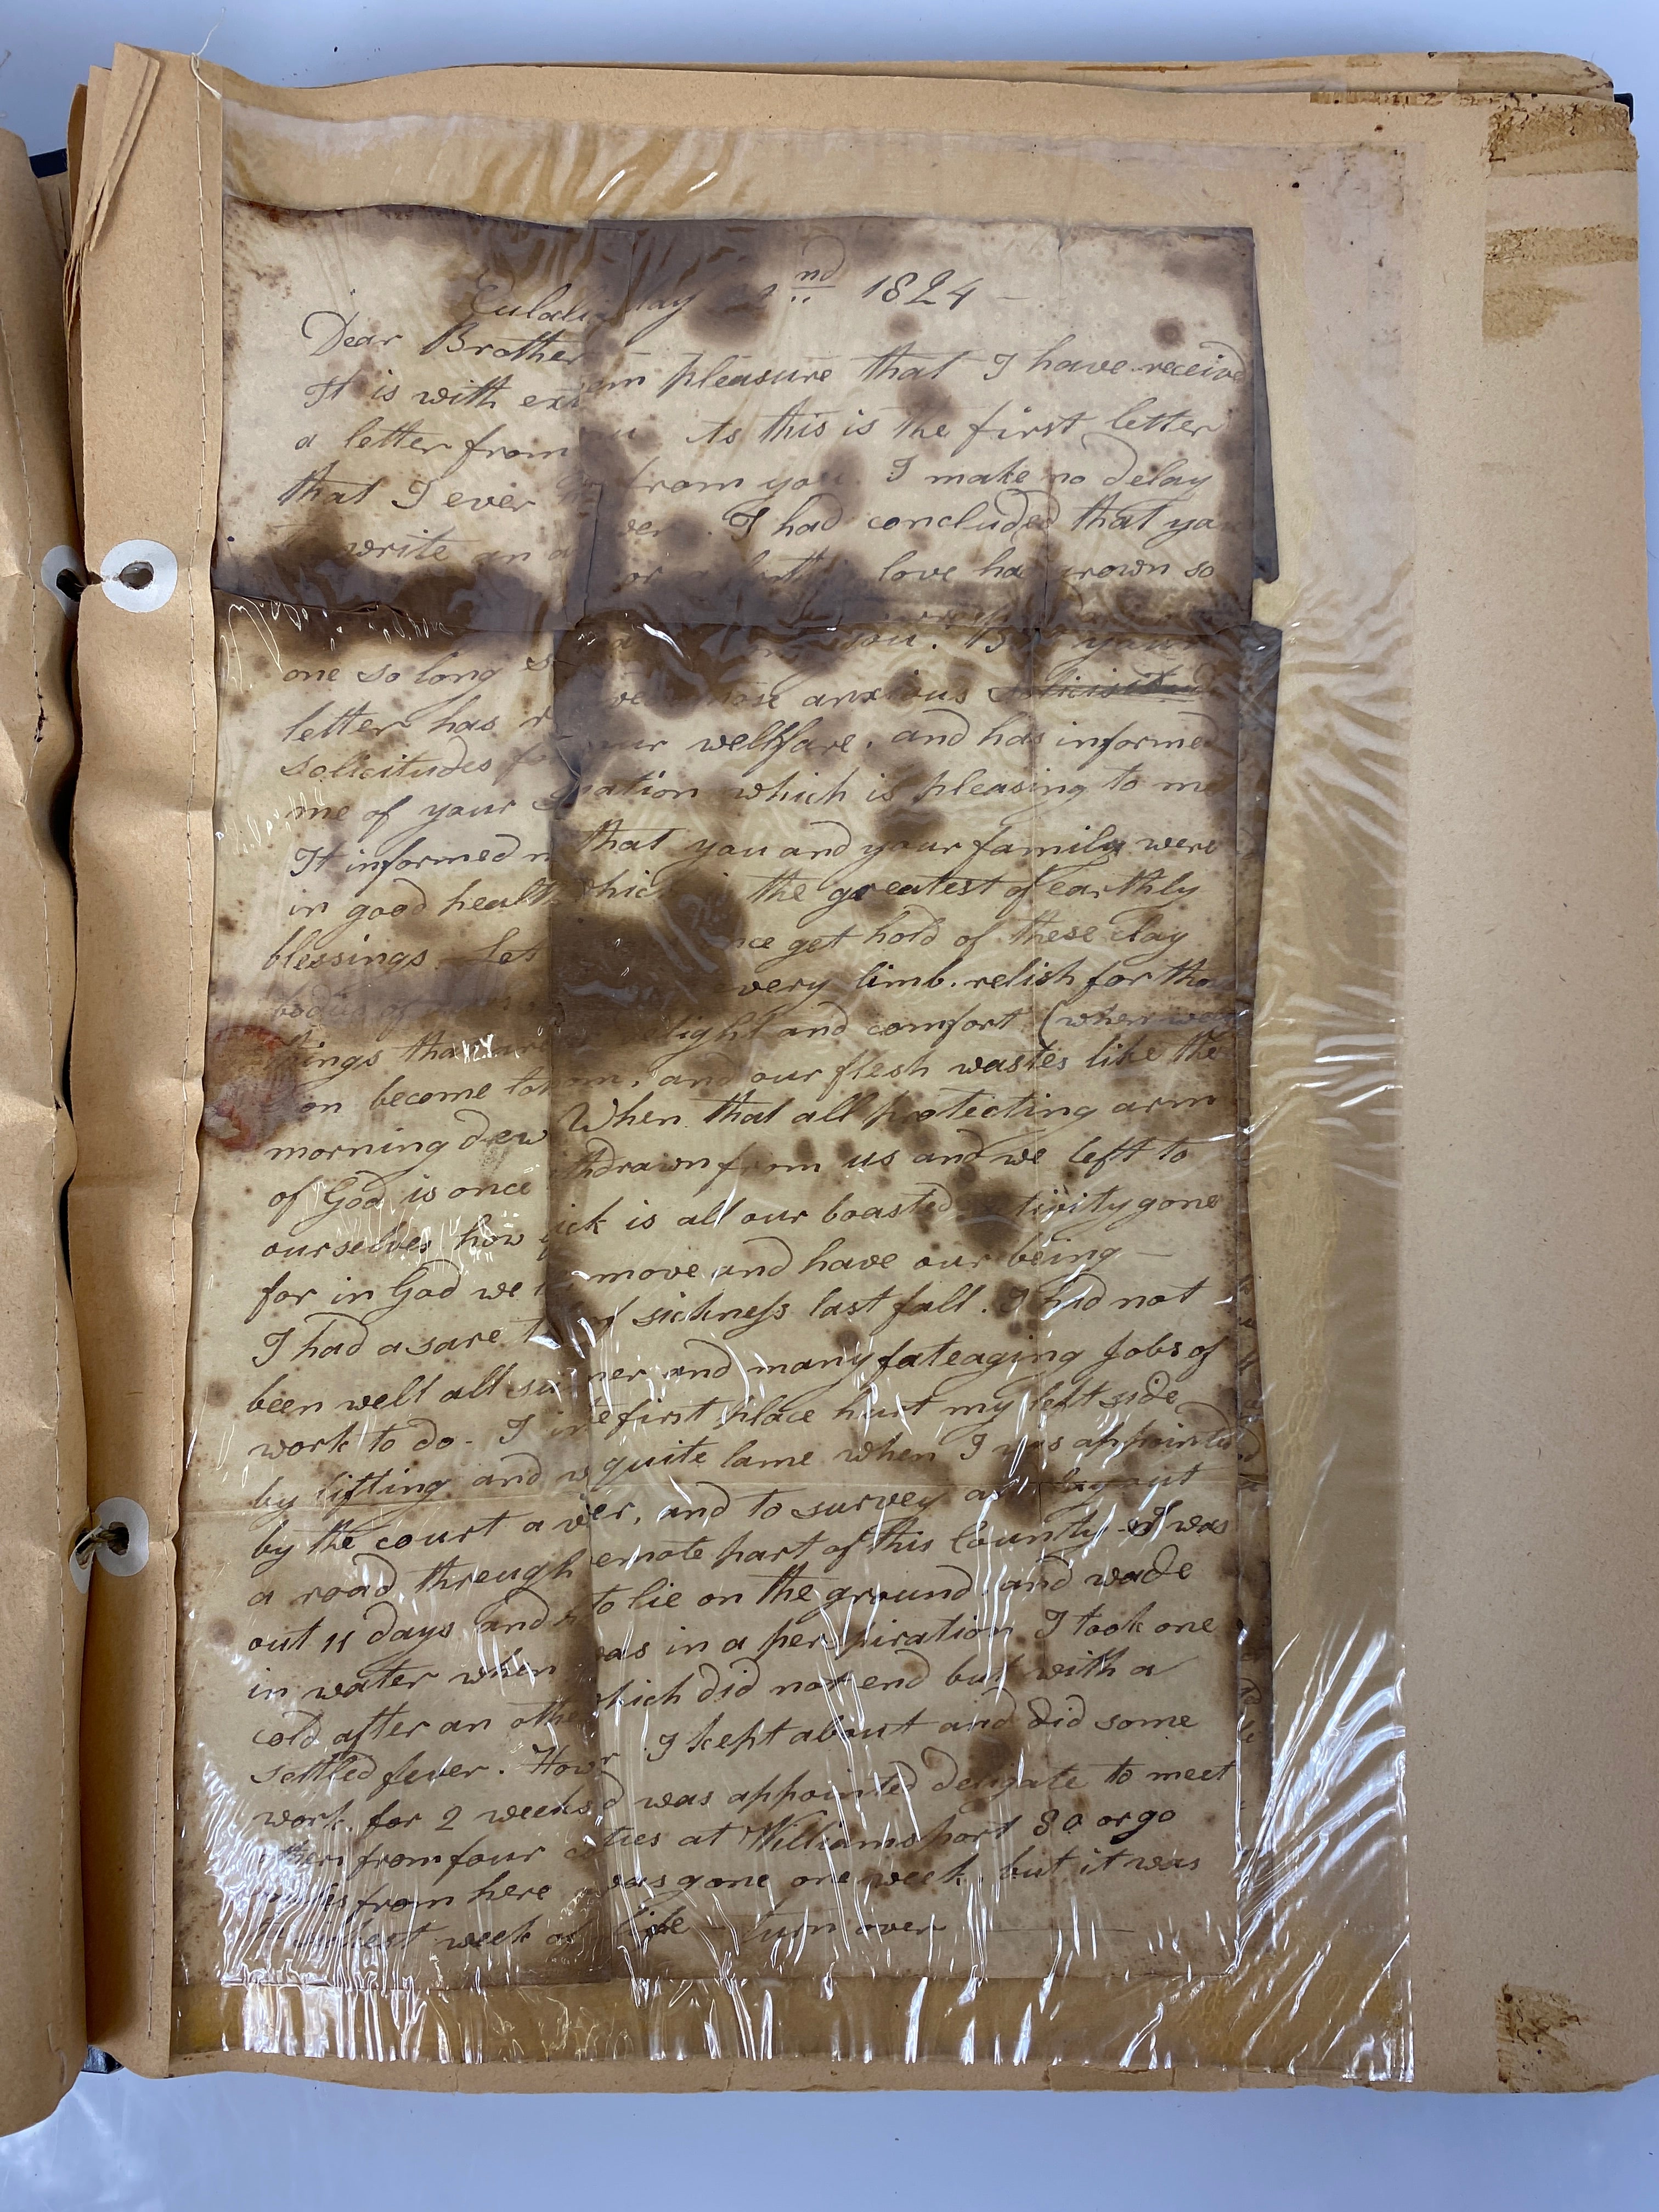 Eulalia May 2nd 1824 —
Dear Brother
It is with ex em pleasure that I have received
a letter from u As this is the first letter
that I ever from you. I make no delay
write an a wer. I had concluded that you
or love has grown so
you. But your
one so long s
letter has r ve those anxious solicitud
solicitudes fo ur wellfare, and has informed
me of your S uation which is pleasing to me
It informed m that you and your family were
in good health which is the greatest of earthly
blessings Let nce get hold of these clay
bodies of every limb. relish for the
things that are light and comfort (when w
on become lo m, and our flesh wastes like the
morning dew When that all protecting arm
of God is once thdrawn from us and we left to
ourselves how ick is all our boasted tivity gone
for in God we move and have our being —
I had a sare t of sickness last fall. I had not
been well all su mer and many fateaging jobs of
work to do - I in e first place hurt my left side
by lifting and w quite lame when I was appointed
by the court a vier, and to survey and lay out
a road through emote part of this County I was
out 11 days and h to lie on the ground and wade
in water when as in a perspiration I took one
cold after an othe which did not end but with a
settled fever. How r I kept about and did some
work for 2 weeks d was appointed deligate to meet
others from four co ties at Williamsport 80 or 90
miles from here was gone one week, but it was
week of life — turn over —